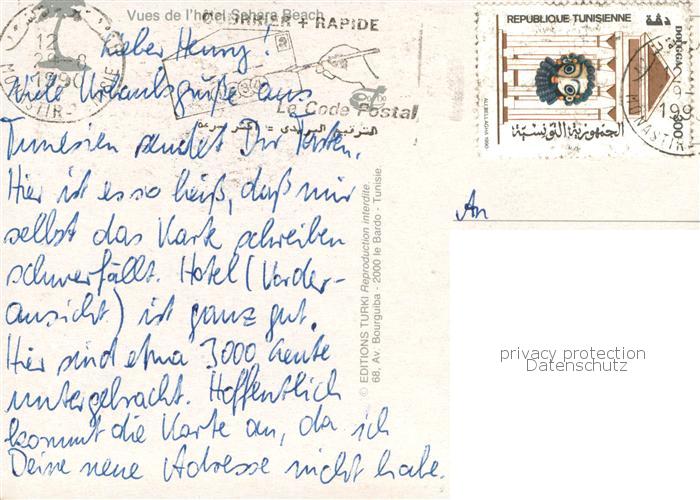 Vues de l'hôtel Sahara Beach
COURRIER + RAPIDE
Le Code Postal
الترقيم البريدي = أكثر سرعة
12
8
1990
MONASTIR
REPUBLIQUE TUNISIENNE
DOUGGA
300
ALI BELLAGHA 1990
الجمهورية التونسية
MONASTIR
Lieber Henry!
Viele Urlaubsgrüße aus
Tunesien sendet Dir Torsten.
Hier ist es so heiß, daß mir
selbst das Karte schreiben
schwerfällt. Hotel (Vorder-
ansicht) ist ganz gut.
Hier sind etwa 3000 Leute
untergebracht. Hoffentlich
kommt die Karte an, da ich
Deine neue Adresse nicht habe.
© EDITIONS TURKI Reproduction interdite.
68, Av. Bourguiba - 2000 le Bardo - Tunisie.
An
privacy protection
Datenschutz